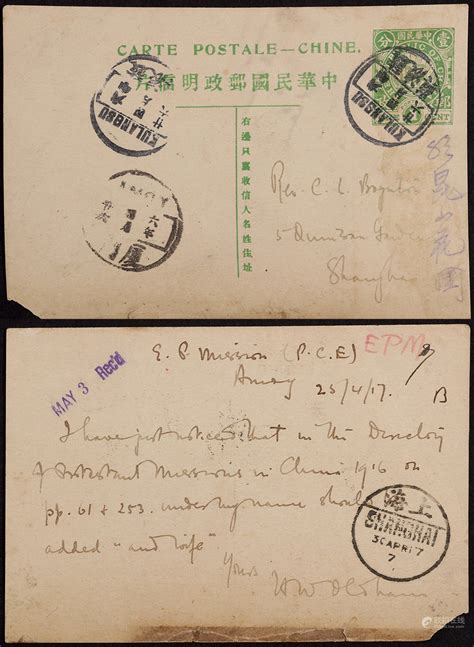 CARTE POSTALE—CHINE.
中華民國郵政明信片
中華民國
壹
分
KULANGSU
KULANGSU
右邊只寫收信人名姓住址
Rev. C. L. Boynton
5 Quinsan Gardens
Shanghai
崑山花園
E. P. Mission (P.C.E)
EPM
Amoy
25/4/17.
B
MAY 3 Rec'd
I have just noticed that in the Directory
of Protestant Missions in China 1916 on
pp. 61 & 253. under my name should
added "and wife"
Yours
上海
SHANGHAI
30 APR 17
7